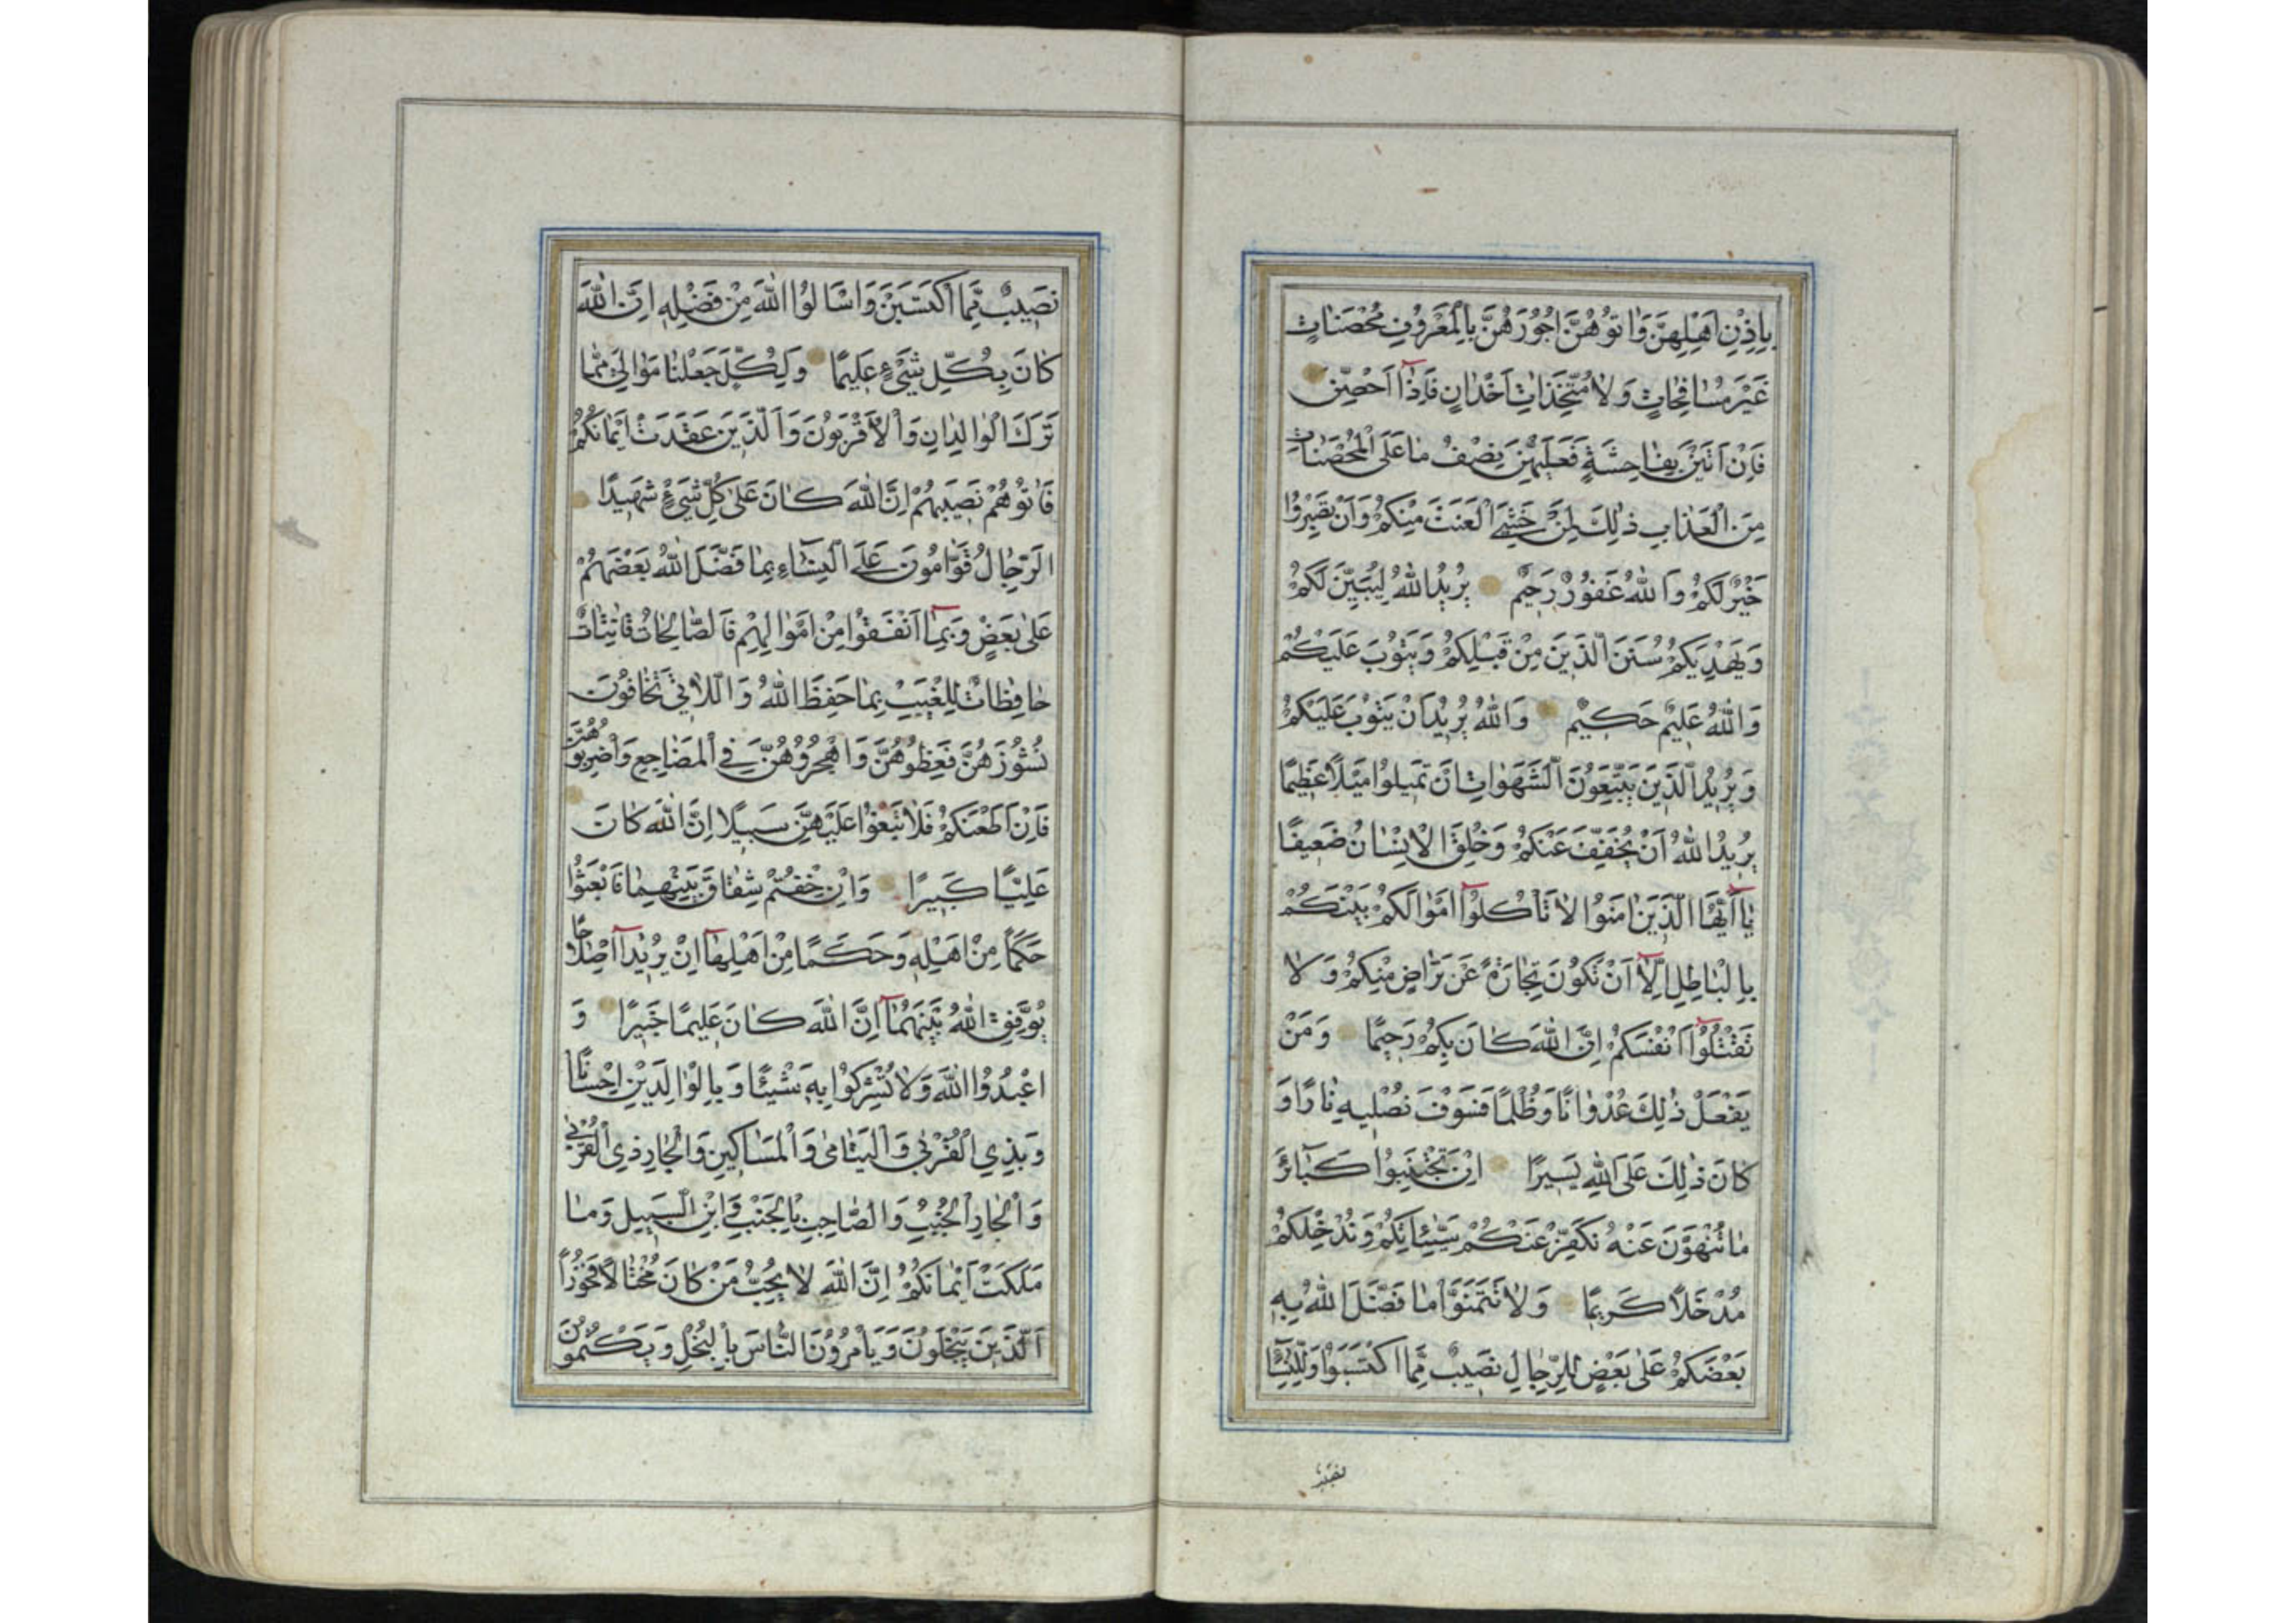 بِاِذْنِ اَهْلِهِنَّ وَاٰتُوهُنَّ اُجُورَهُنَّ بِالْمَعْرُوفِ مُحْصَنَاتٍ
غَيْرَ مُسَافِحَاتٍ وَلَا مُتَّخِذَاتِ اَخْدَانٍ فَاِذَآ اُحْصِنَّ
فَاِنْ اَتَيْنَ بِفَاحِشَةٍ فَعَلَيْهِنَّ نِصْفُ مَا عَلَى الْمُحْصَنَاتِ
مِنَ الْعَذَابِ ذٰلِكَ لِمَنْ خَشِيَ الْعَنَتَ مِنْكُمْ وَاَنْ تَصْبِرُوا
خَيْرٌ لَكُمْ وَاللّٰهُ غَفُورٌ رَحِيمٌ يُرِيدُ اللّٰهُ لِيُبَيِّنَ لَكُمْ
وَيَهْدِيَكُمْ سُنَنَ الَّذِينَ مِنْ قَبْلِكُمْ وَيَتُوبَ عَلَيْكُمْ
وَاللّٰهُ عَلِيمٌ حَكِيمٌ وَاللّٰهُ يُرِيدُ اَنْ يَتُوبَ عَلَيْكُمْ
وَيُرِيدُ الَّذِينَ يَتَّبِعُونَ الشَّهَوَاتِ اَنْ تَمِيلُوا مَيْلًا عَظِيمًا
يُرِيدُ اللّٰهُ اَنْ يُخَفِّفَ عَنْكُمْ وَخُلِقَ الْاِنْسَانُ ضَعِيفًا
يَآ اَيُّهَا الَّذِينَ اٰمَنُوا لَا تَاْكُلُوآ اَمْوَالَكُمْ بَيْنَكُمْ
بِالْبَاطِلِ اِلَّآ اَنْ تَكُونَ تِجَارَةً عَنْ تَرَاضٍ مِنْكُمْ وَلَا
تَقْتُلُوآ اَنْفُسَكُمْ اِنَّ اللّٰهَ كَانَ بِكُمْ رَحِيمًا وَمَنْ
يَفْعَلْ ذٰلِكَ عُدْوَانًا وَظُلْمًا فَسَوْفَ نُصْلِيهِ نَارًا وَ
كَانَ ذٰلِكَ عَلَى اللّٰهِ يَسِيرًا اِنْ تَجْتَنِبُوا كَبَآئِرَ
مَا تُنْهَوْنَ عَنْهُ نُكَفِّرْ عَنْكُمْ سَيِّئَاتِكُمْ وَنُدْخِلْكُمْ
مُدْخَلًا كَرِيمًا وَلَا تَتَمَنَّوْا مَا فَضَّلَ اللّٰهُ بِهِ
بَعْضَكُمْ عَلٰى بَعْضٍ لِلرِّجَالِ نَصِيبٌ مِمَّا اكْتَسَبُوا وَلِلنِّسَآءِ
نَصِيبٌ
نَصِيبٌ مِمَّا اكْتَسَبْنَ وَاسْاَلُوا اللّٰهَ مِنْ فَضْلِهِ اِنَّ اللّٰهَ
كَانَ بِكُلِّ شَيْءٍ عَلِيمًا وَلِكُلٍّ جَعَلْنَا مَوَالِيَ مِمَّا
تَرَكَ الْوَالِدَانِ وَالْاَقْرَبُونَ وَالَّذِينَ عَقَدَتْ اَيْمَانُكُمْ
فَاٰتُوهُمْ نَصِيبَهُمْ اِنَّ اللّٰهَ كَانَ عَلٰى كُلِّ شَيْءٍ شَهِيدًا
اَلرِّجَالُ قَوَّامُونَ عَلَى النِّسَآءِ بِمَا فَضَّلَ اللّٰهُ بَعْضَهُمْ
عَلٰى بَعْضٍ وَبِمَآ اَنْفَقُوا مِنْ اَمْوَالِهِمْ فَالصَّالِحَاتُ قَانِتَاتٌ
حَافِظَاتٌ لِلْغَيْبِ بِمَا حَفِظَ اللّٰهُ وَاللَّاتِي تَخَافُونَ
نُشُوزَهُنَّ فَعِظُوهُنَّ وَاهْجُرُوهُنَّ فِي الْمَضَاجِعِ وَاضْرِبُوهُنَّ
فَاِنْ اَطَعْنَكُمْ فَلَا تَبْغُوا عَلَيْهِنَّ سَبِيلًا اِنَّ اللّٰهَ كَانَ
عَلِيًّا كَبِيرًا وَاِنْ خِفْتُمْ شِقَاقَ بَيْنِهِمَا فَابْعَثُوا
حَكَمًا مِنْ اَهْلِهِ وَحَكَمًا مِنْ اَهْلِهَآ اِنْ يُرِيدَآ اِصْلَاحًا
يُوَفِّقِ اللّٰهُ بَيْنَهُمَآ اِنَّ اللّٰهَ كَانَ عَلِيمًا خَبِيرًا وَ
اعْبُدُوا اللّٰهَ وَلَا تُشْرِكُوا بِهِ شَيْئًا وَبِالْوَالِدَيْنِ اِحْسَانًا
وَبِذِي الْقُرْبٰى وَالْيَتَامٰى وَالْمَسَاكِينِ وَالْجَارِ ذِي الْقُرْبٰى
وَالْجَارِ الْجُنُبِ وَالصَّاحِبِ بِالْجَنْبِ وَابْنِ السَّبِيلِ وَمَا
مَلَكَتْ اَيْمَانُكُمْ اِنَّ اللّٰهَ لَا يُحِبُّ مَنْ كَانَ مُخْتَالًا فَخُورًا
اَلَّذِينَ يَبْخَلُونَ وَيَاْمُرُونَ النَّاسَ بِالْبُخْلِ وَيَكْتُمُونَ